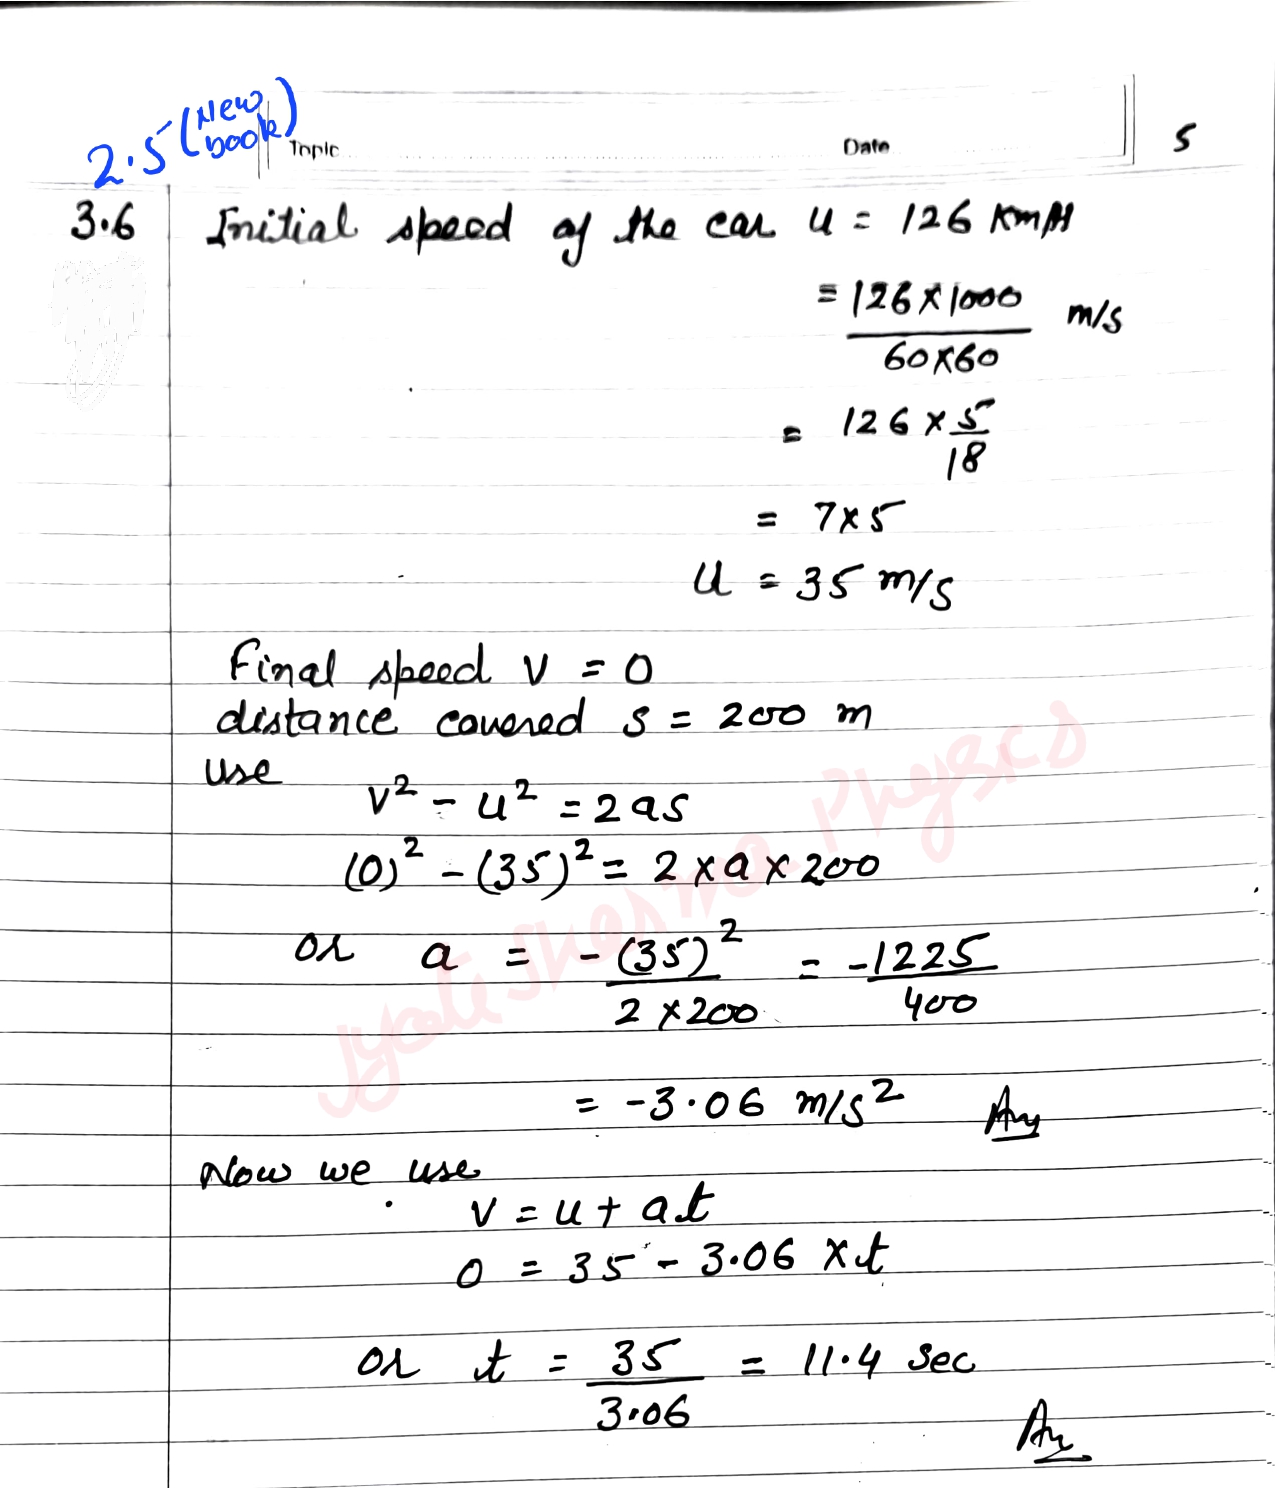 2.5 (New book)
Topic Date 5
3.6 Initial speed of the car u = 126 KmpH
= 126 × 1000 / 60×60 m/s
= 126 × 5/18
= 7×5
u = 35 m/s
Final speed v = 0
distance covered s = 200 m
use
v² - u² = 2as
(0)² - (35)² = 2 × a × 200
or a = -(35)² / 2 × 200 = -1225 / 400
= -3.06 m/s² Ans
Now we use
v = u + at
0 = 35 - 3.06 × t
or t = 35 / 3.06 = 11.4 sec
Ans
Jyoti Sharma Physics